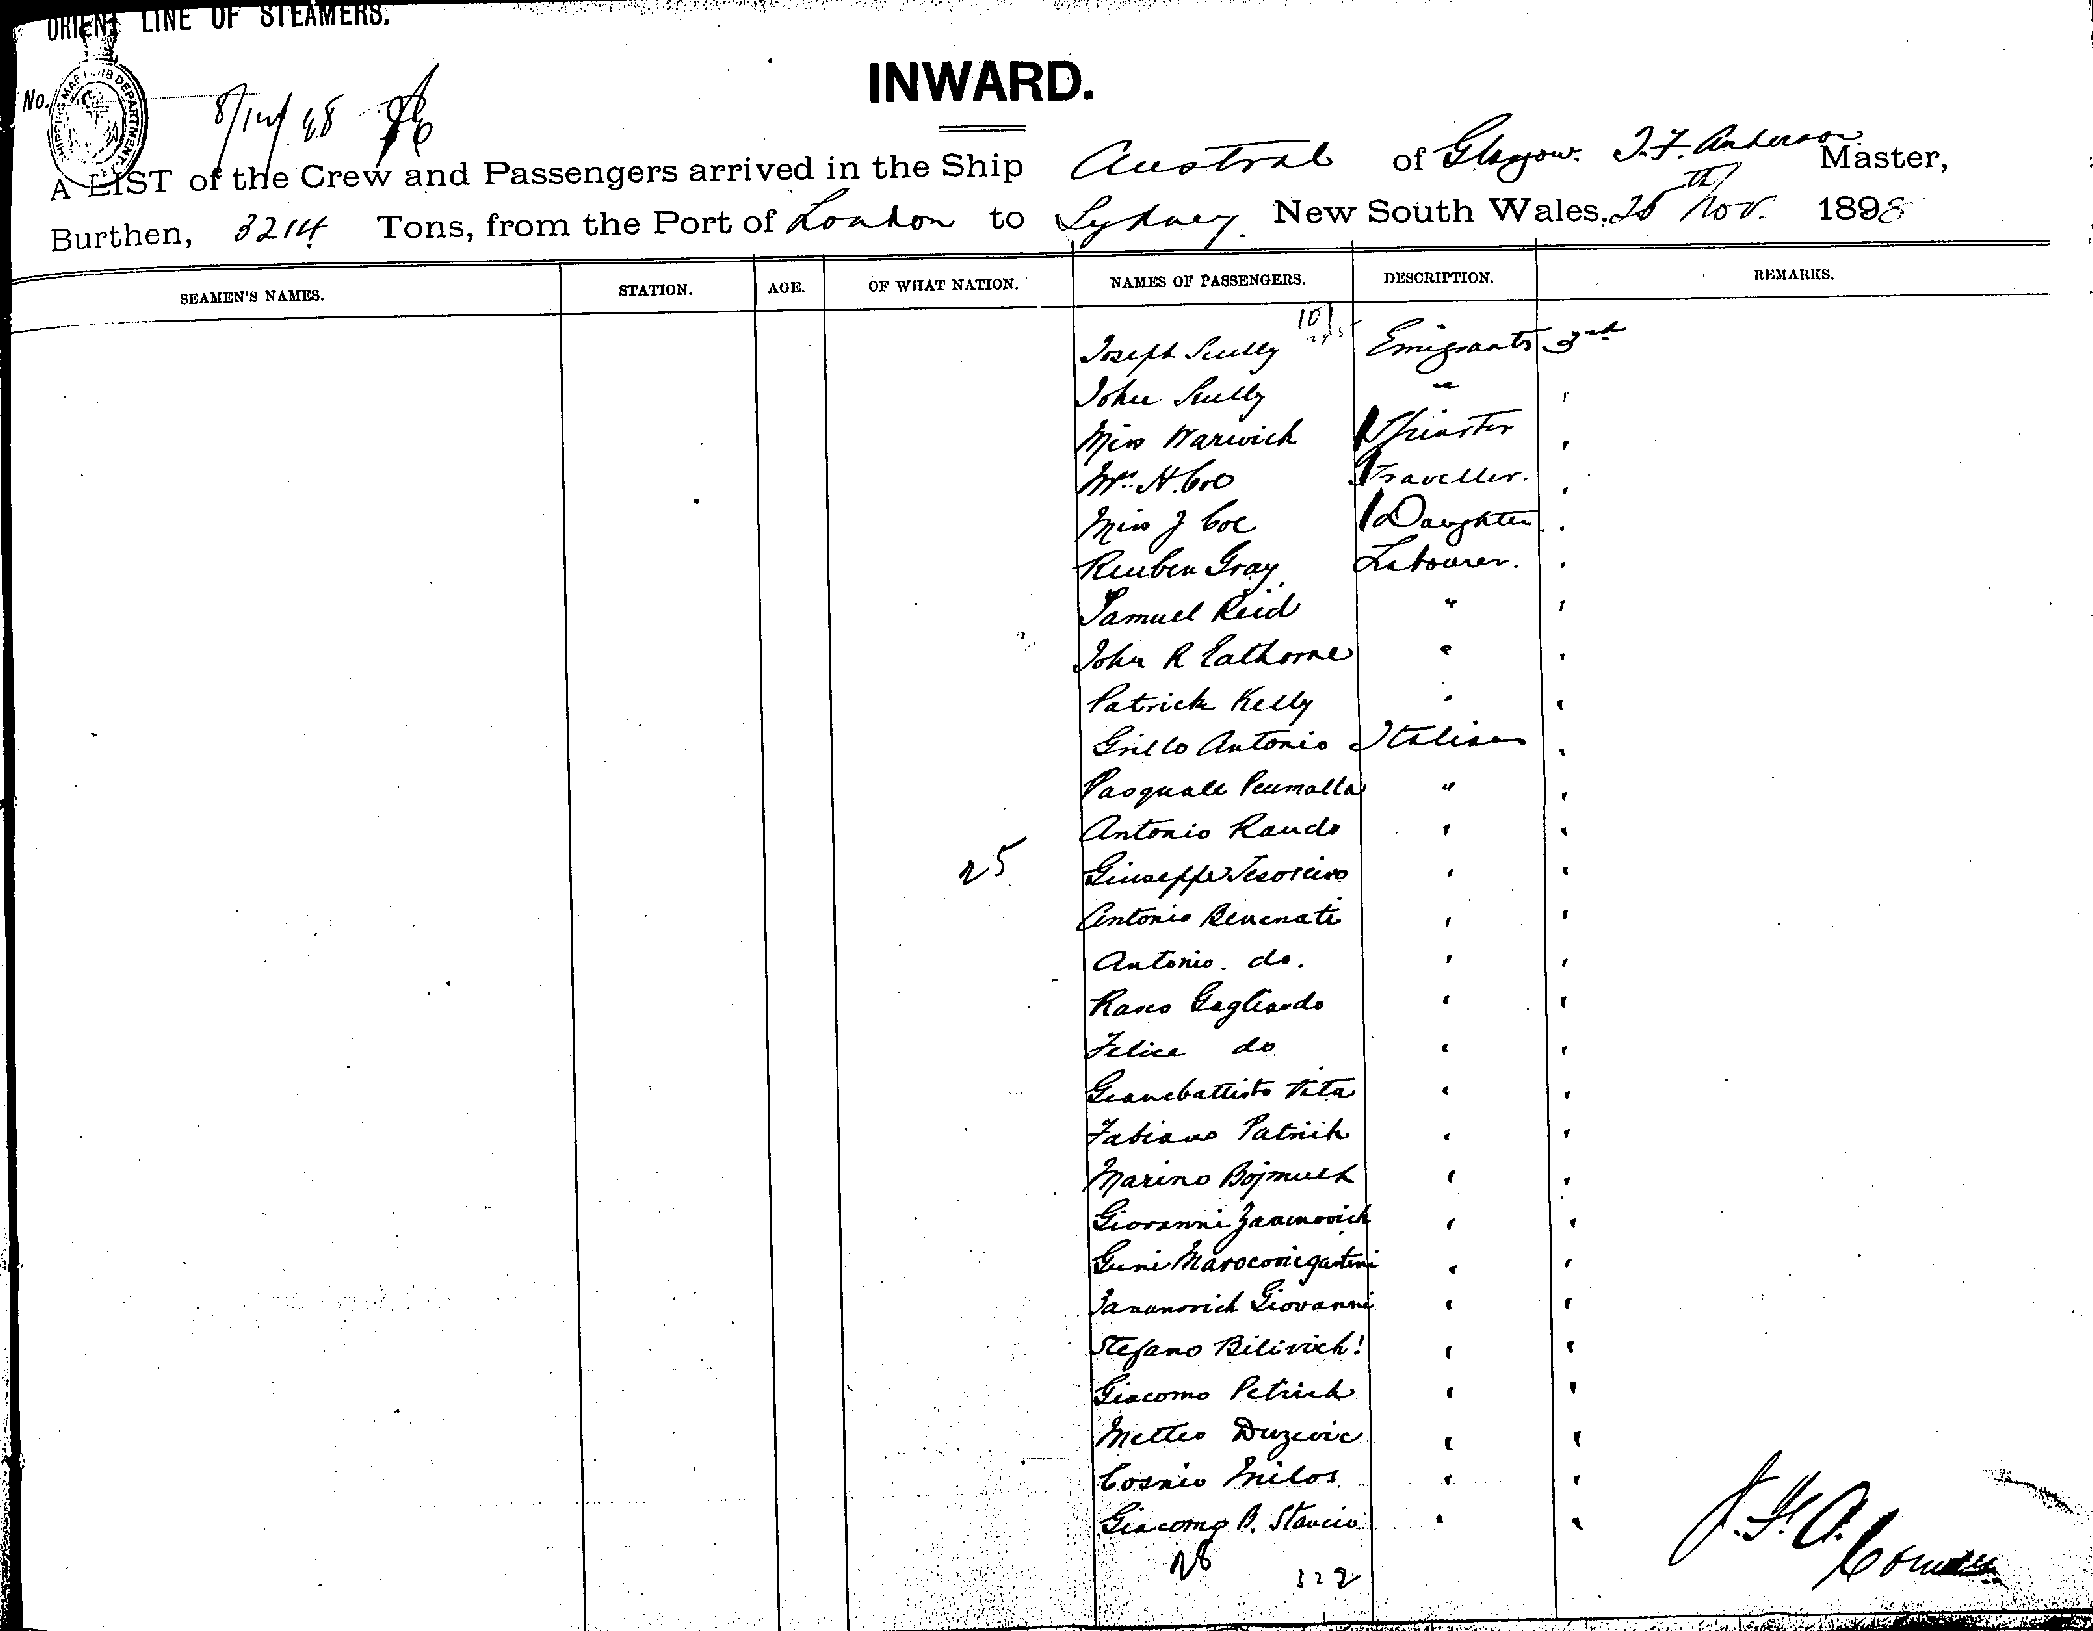 ORIENT LINE OF STEAMERS.
INWARD.
No.
A LIST of the Crew and Passengers arrived in the Ship Austral of Glasgow. J. F. Anderson Master,
Burthen, 3214 Tons, from the Port of London to Sydney. New South Wales, Nov. 1898
SEAMEN'S NAMES. STATION. AGE. OF WHAT NATION. NAMES OF PASSENGERS. DESCRIPTION. REMARKS.
101
Joseph Scully Emigrants 3rd
John Scully " "
Miss Warwick 1 Spinster "
Mr. H. Coe Traveller. "
Miss J Coe 1 Daughter "
Reuben Gray Labourer. "
Samuel Reid " "
John R Eathorne " "
Patrick Kelly " "
Grillo Antonio Italian "
Pasquale " "
Antonio Raudo " "
25 Giuseppe Tesoriero " "
Antonio Benenati " "
Antonio. do. " "
Gagliardo " "
Felice do " "
Gianebattista Vita " "
Fabiano Patrich " "
Marino " "
Giovanni " "
" "
Giovanni " "
Stefano Bilivich! " "
Giacomo Petrich " "
Matteo Duzevic " "
Milos " "
Giacomo B. " "
28 322
J. F. A.